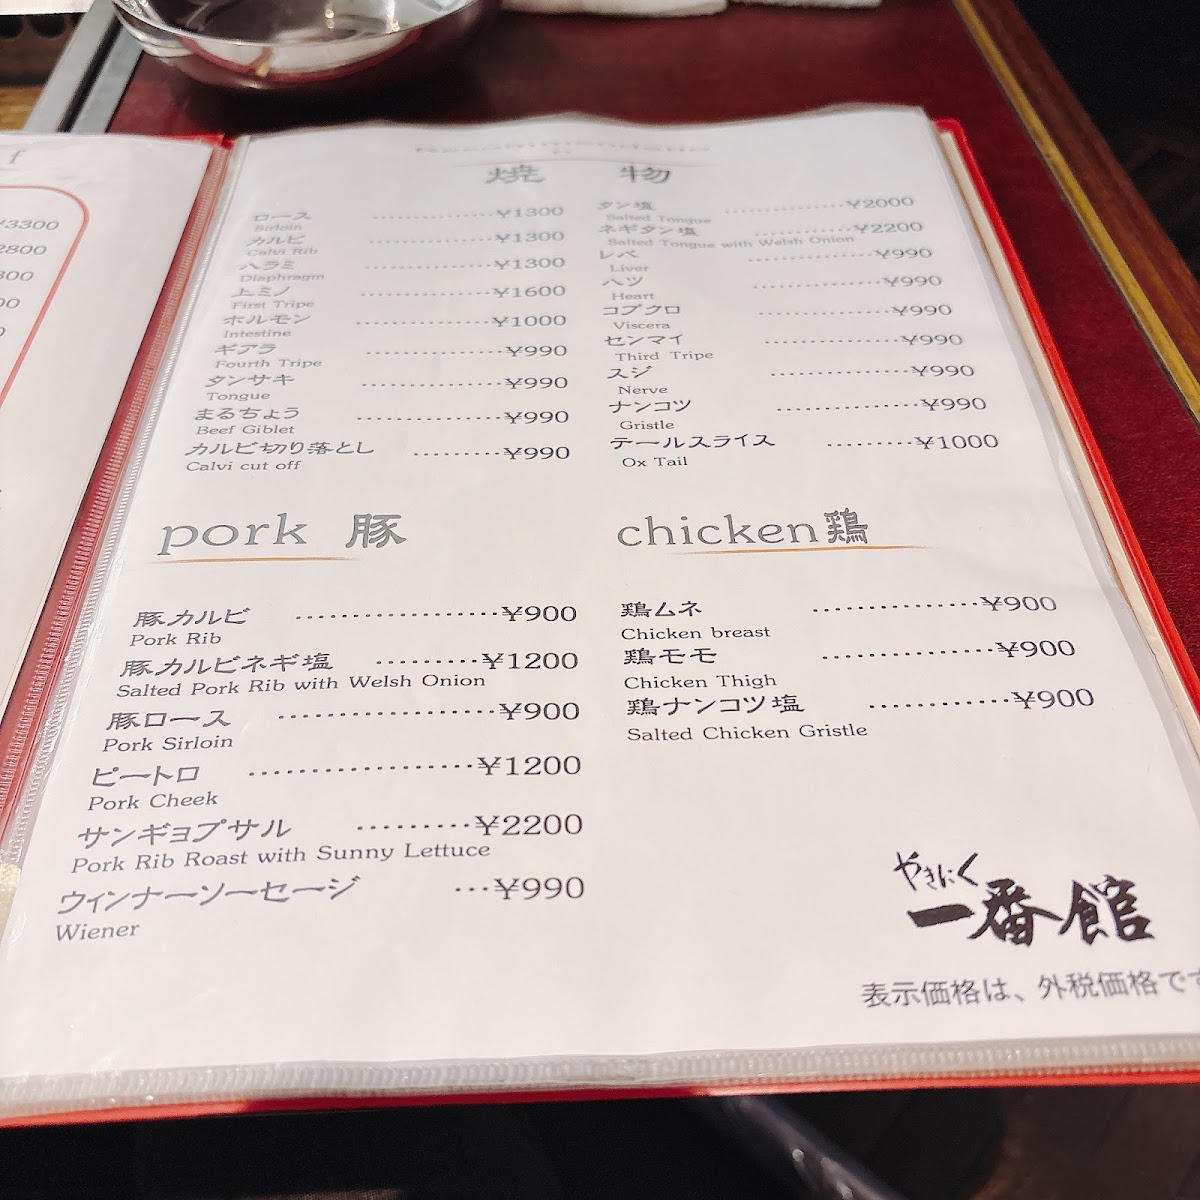 f
¥3300
2800
焼 物
ロース ……………¥1300
Sirloin
カルビ ……………¥1300
Calvi Rib
ハラミ ……………¥1300
Diaphragm
上ミノ ……………¥1600
First Tripe
ホルモン ……………¥1000
Intestine
ギアラ ……………¥990
Fourth Tripe
タンサキ ……………¥990
Tongue
まるちょう ……………¥990
Beef Giblet
カルビ切り落とし ………¥990
Calvi cut off
タン塩 ……………¥2000
Salted Tongue
ネギタン塩 ……………¥2200
Salted Tongue with Welsh Onion
レバ ……………¥990
Liver
ハツ ……………¥990
Heart
コブクロ ……………¥990
Viscera
センマイ ……………¥990
Third Tripe
スジ ……………¥990
Nerve
ナンコツ ……………¥990
Gristle
テールスライス ………¥1000
Ox Tail
pork 豚
豚カルビ ………………¥900
Pork Rib
豚カルビネギ塩 ………¥1200
Salted Pork Rib with Welsh Onion
豚ロース ………………¥900
Pork Sirloin
ピートロ ………………¥1200
Pork Cheek
サンギョプサル ………¥2200
Pork Rib Roast with Sunny Lettuce
ウィンナーソーセージ …¥990
Wiener
chicken鶏
鶏ムネ ……………¥900
Chicken breast
鶏モモ ……………¥900
Chicken Thigh
鶏ナンコツ塩 …………¥900
Salted Chicken Gristle
やきにく
一番館
表示価格は、外税価格です